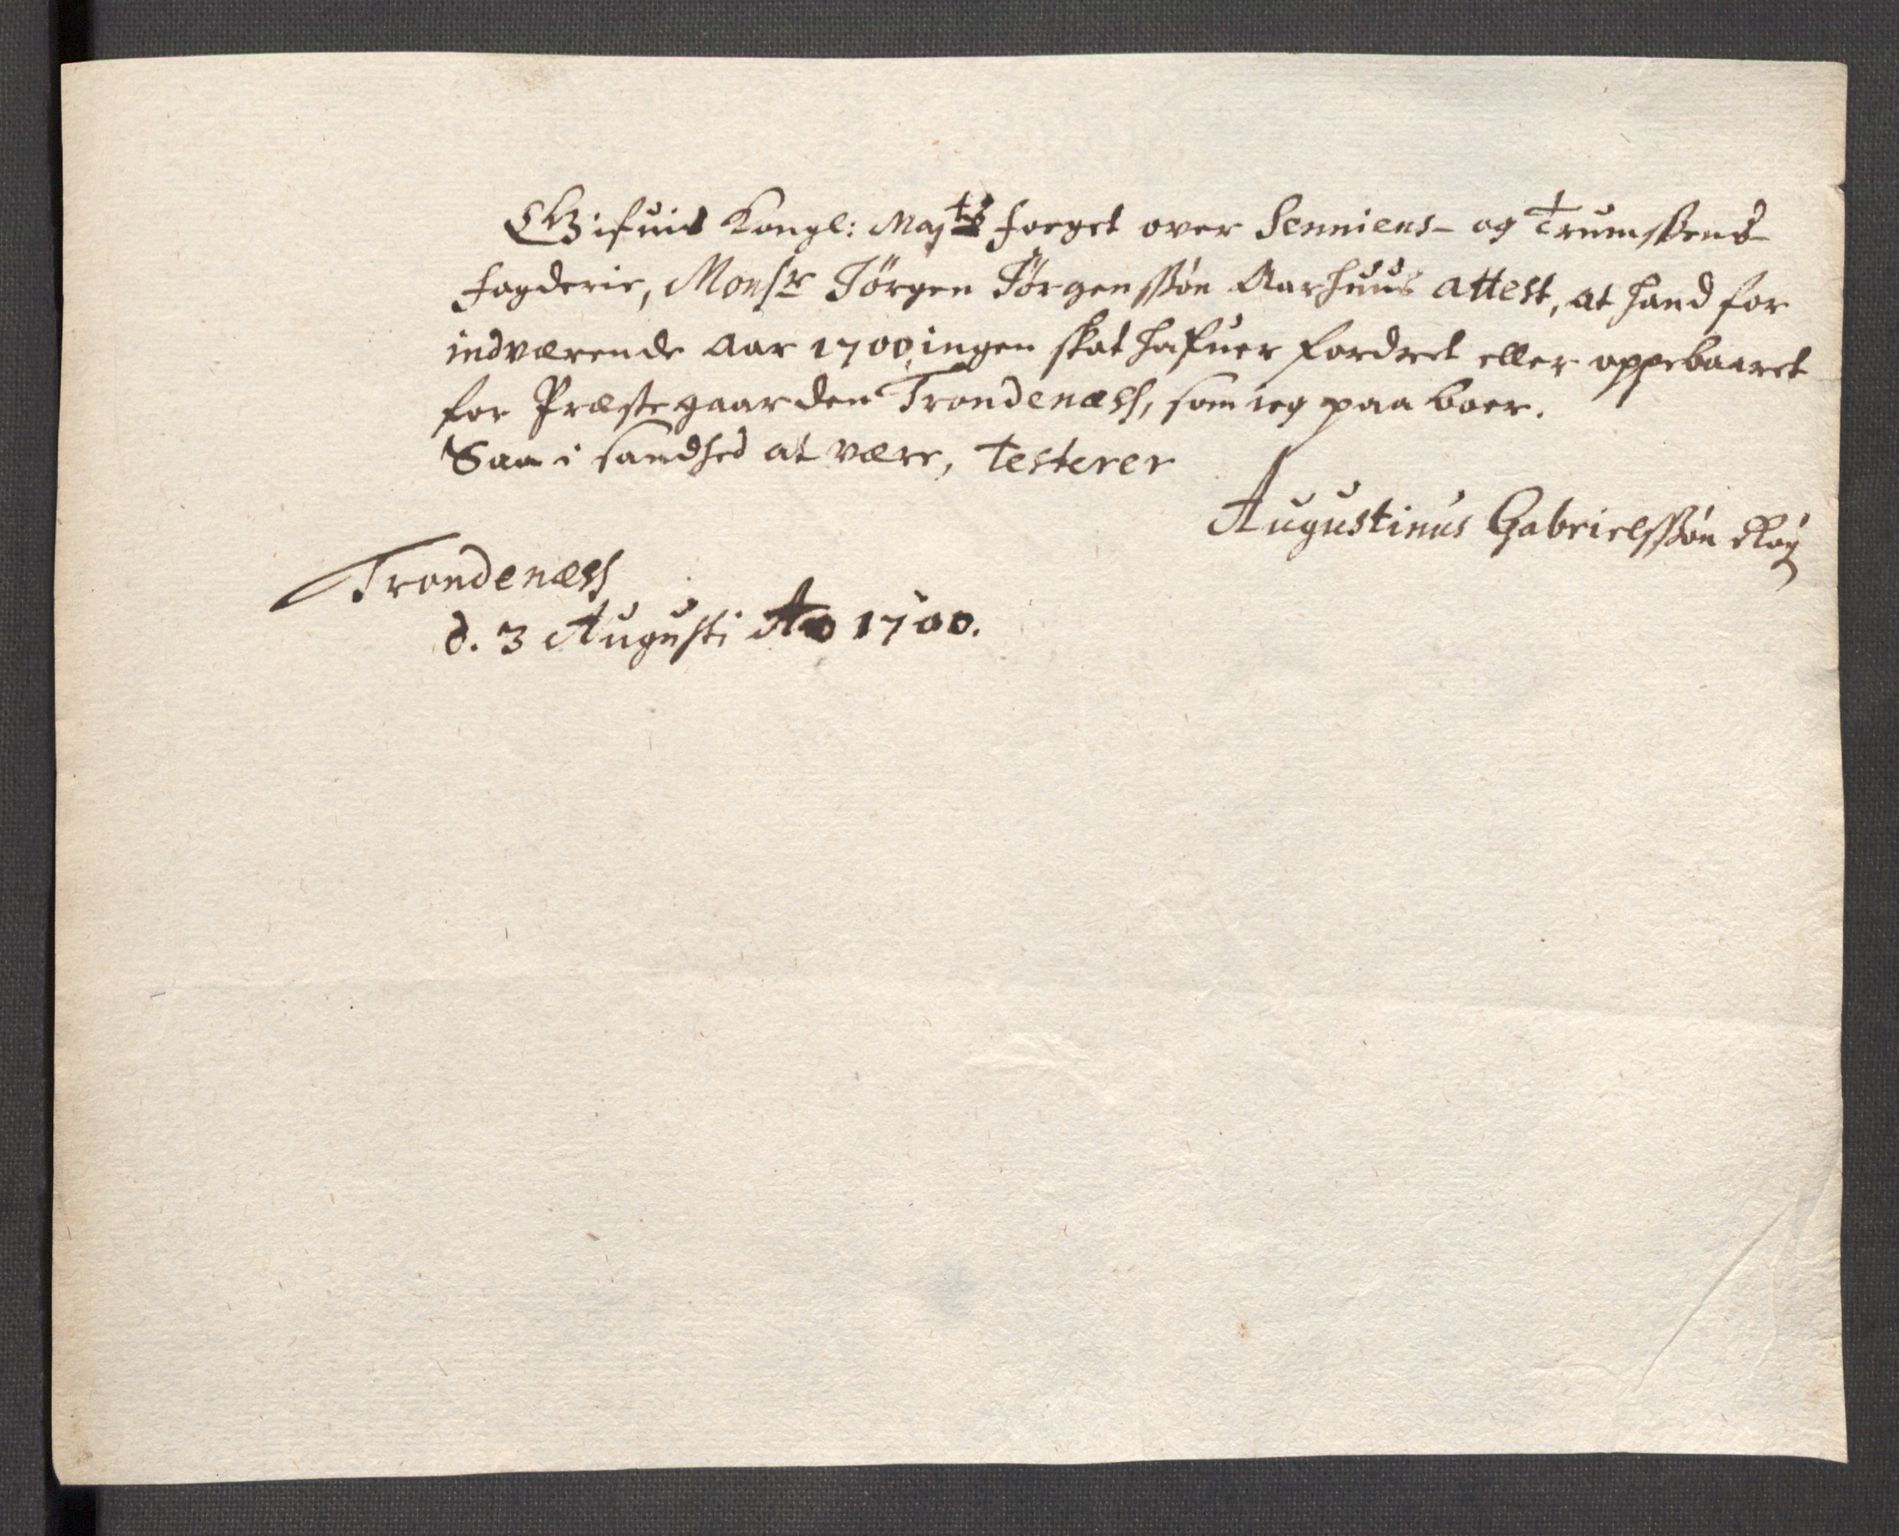 Gifuis Kongl: Maj:ts foeget over Senniens- og Trumssens-
fogderie, Monsr Jörgen Jörgenssön Aarhuus attest, at hand for
indværende Aar 1700, ingen skat hafuer fordret eller oppebaaret
for Præstegaarden Trondenæss, som ieg paa boer.
Saa i sandhed at være, testerer
Augustinus Gabrielssön Rög
Trondenæss
d. 3 Augusti Ao 1700.